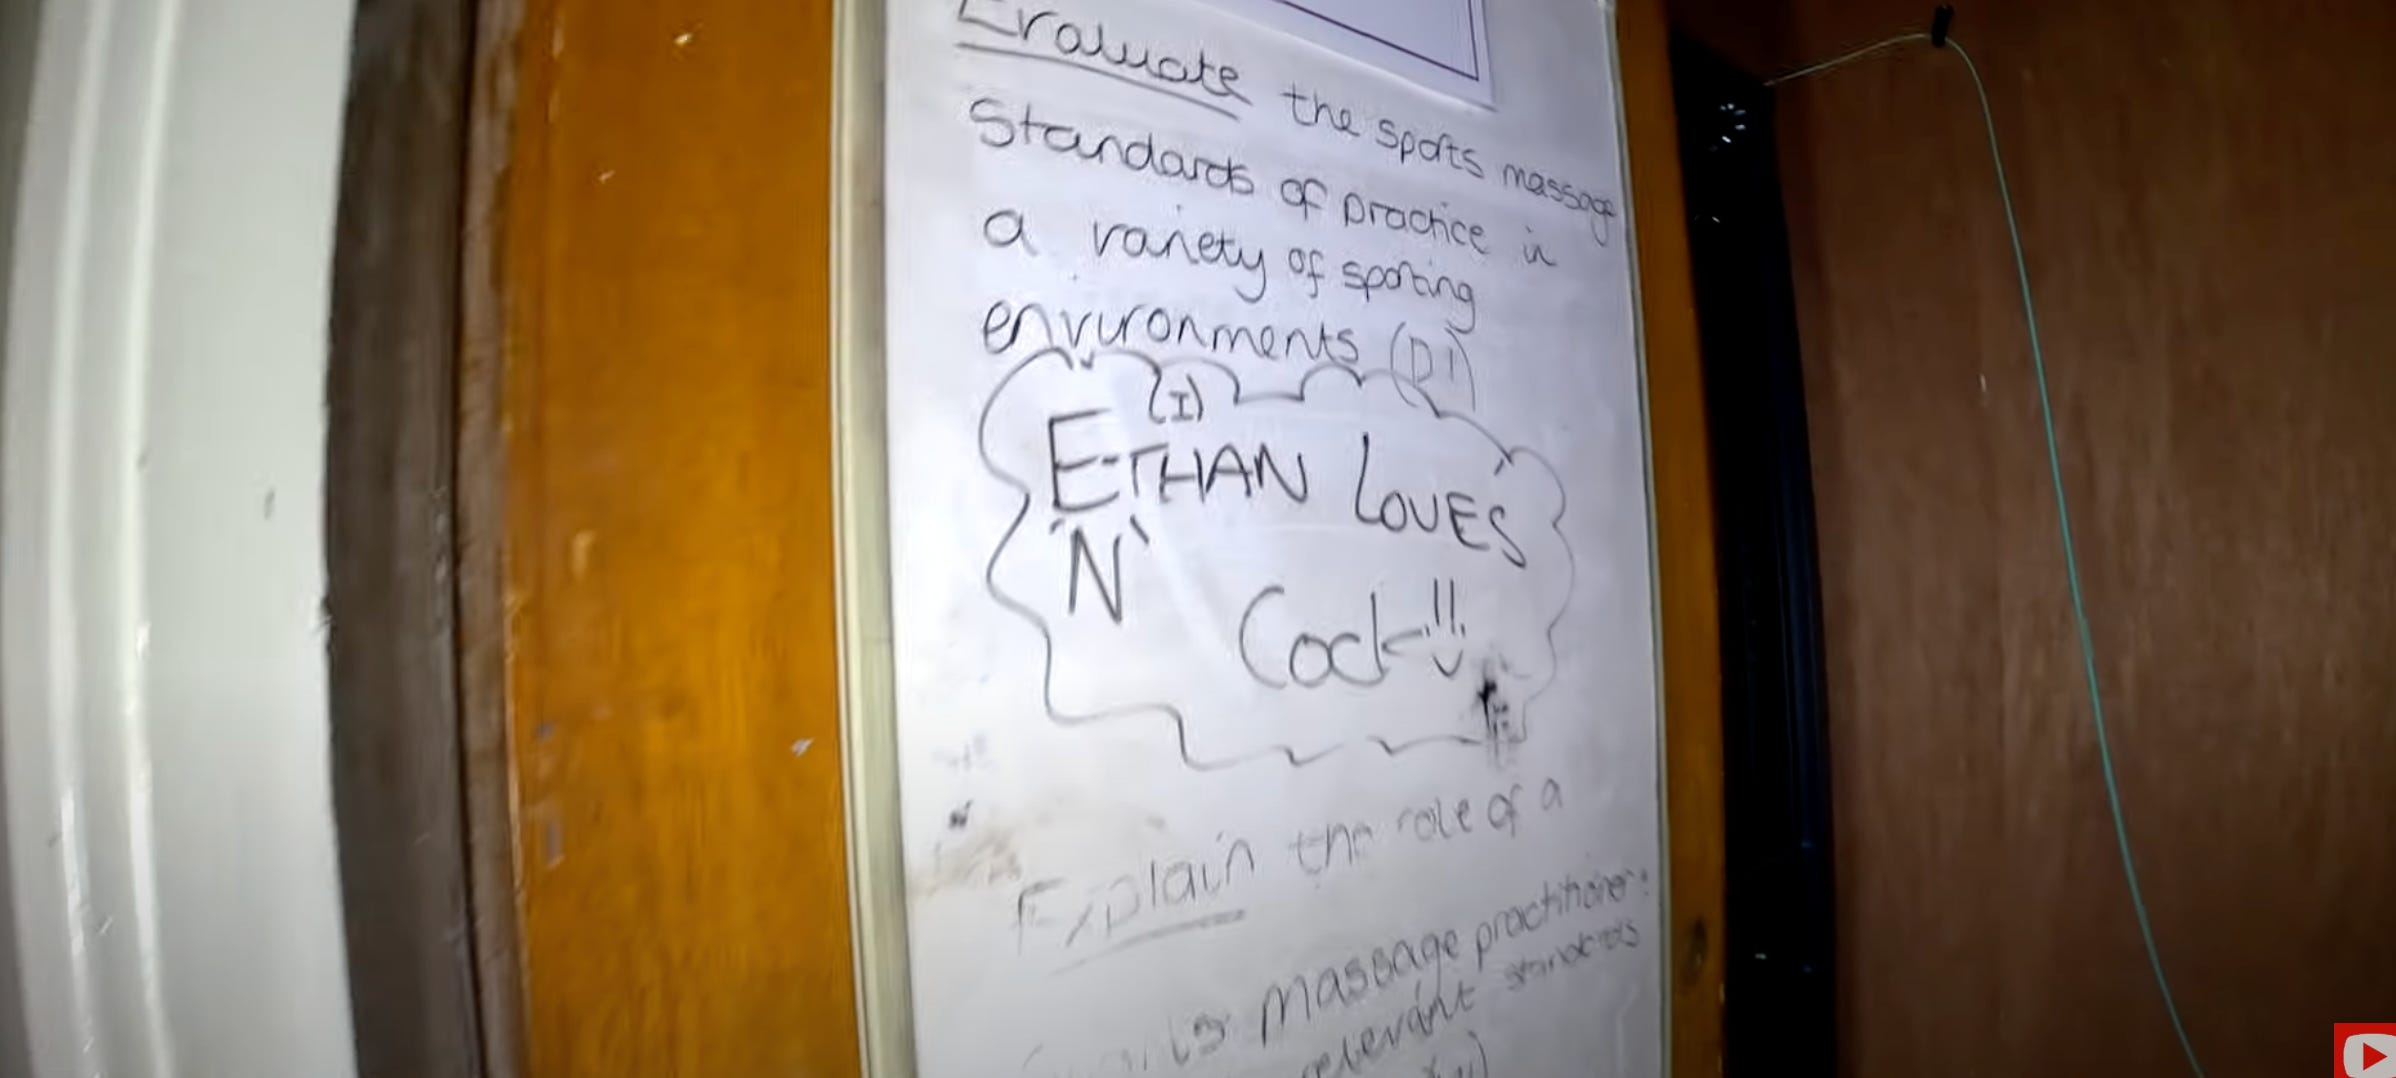 Evaluate the sports massage
Standards of practice in
a variety of sporting
environments (D1)
(I)
ETHAN LOVES
'N'
Cock!!
Explain the role of a
massage practitioner:
relevant standards